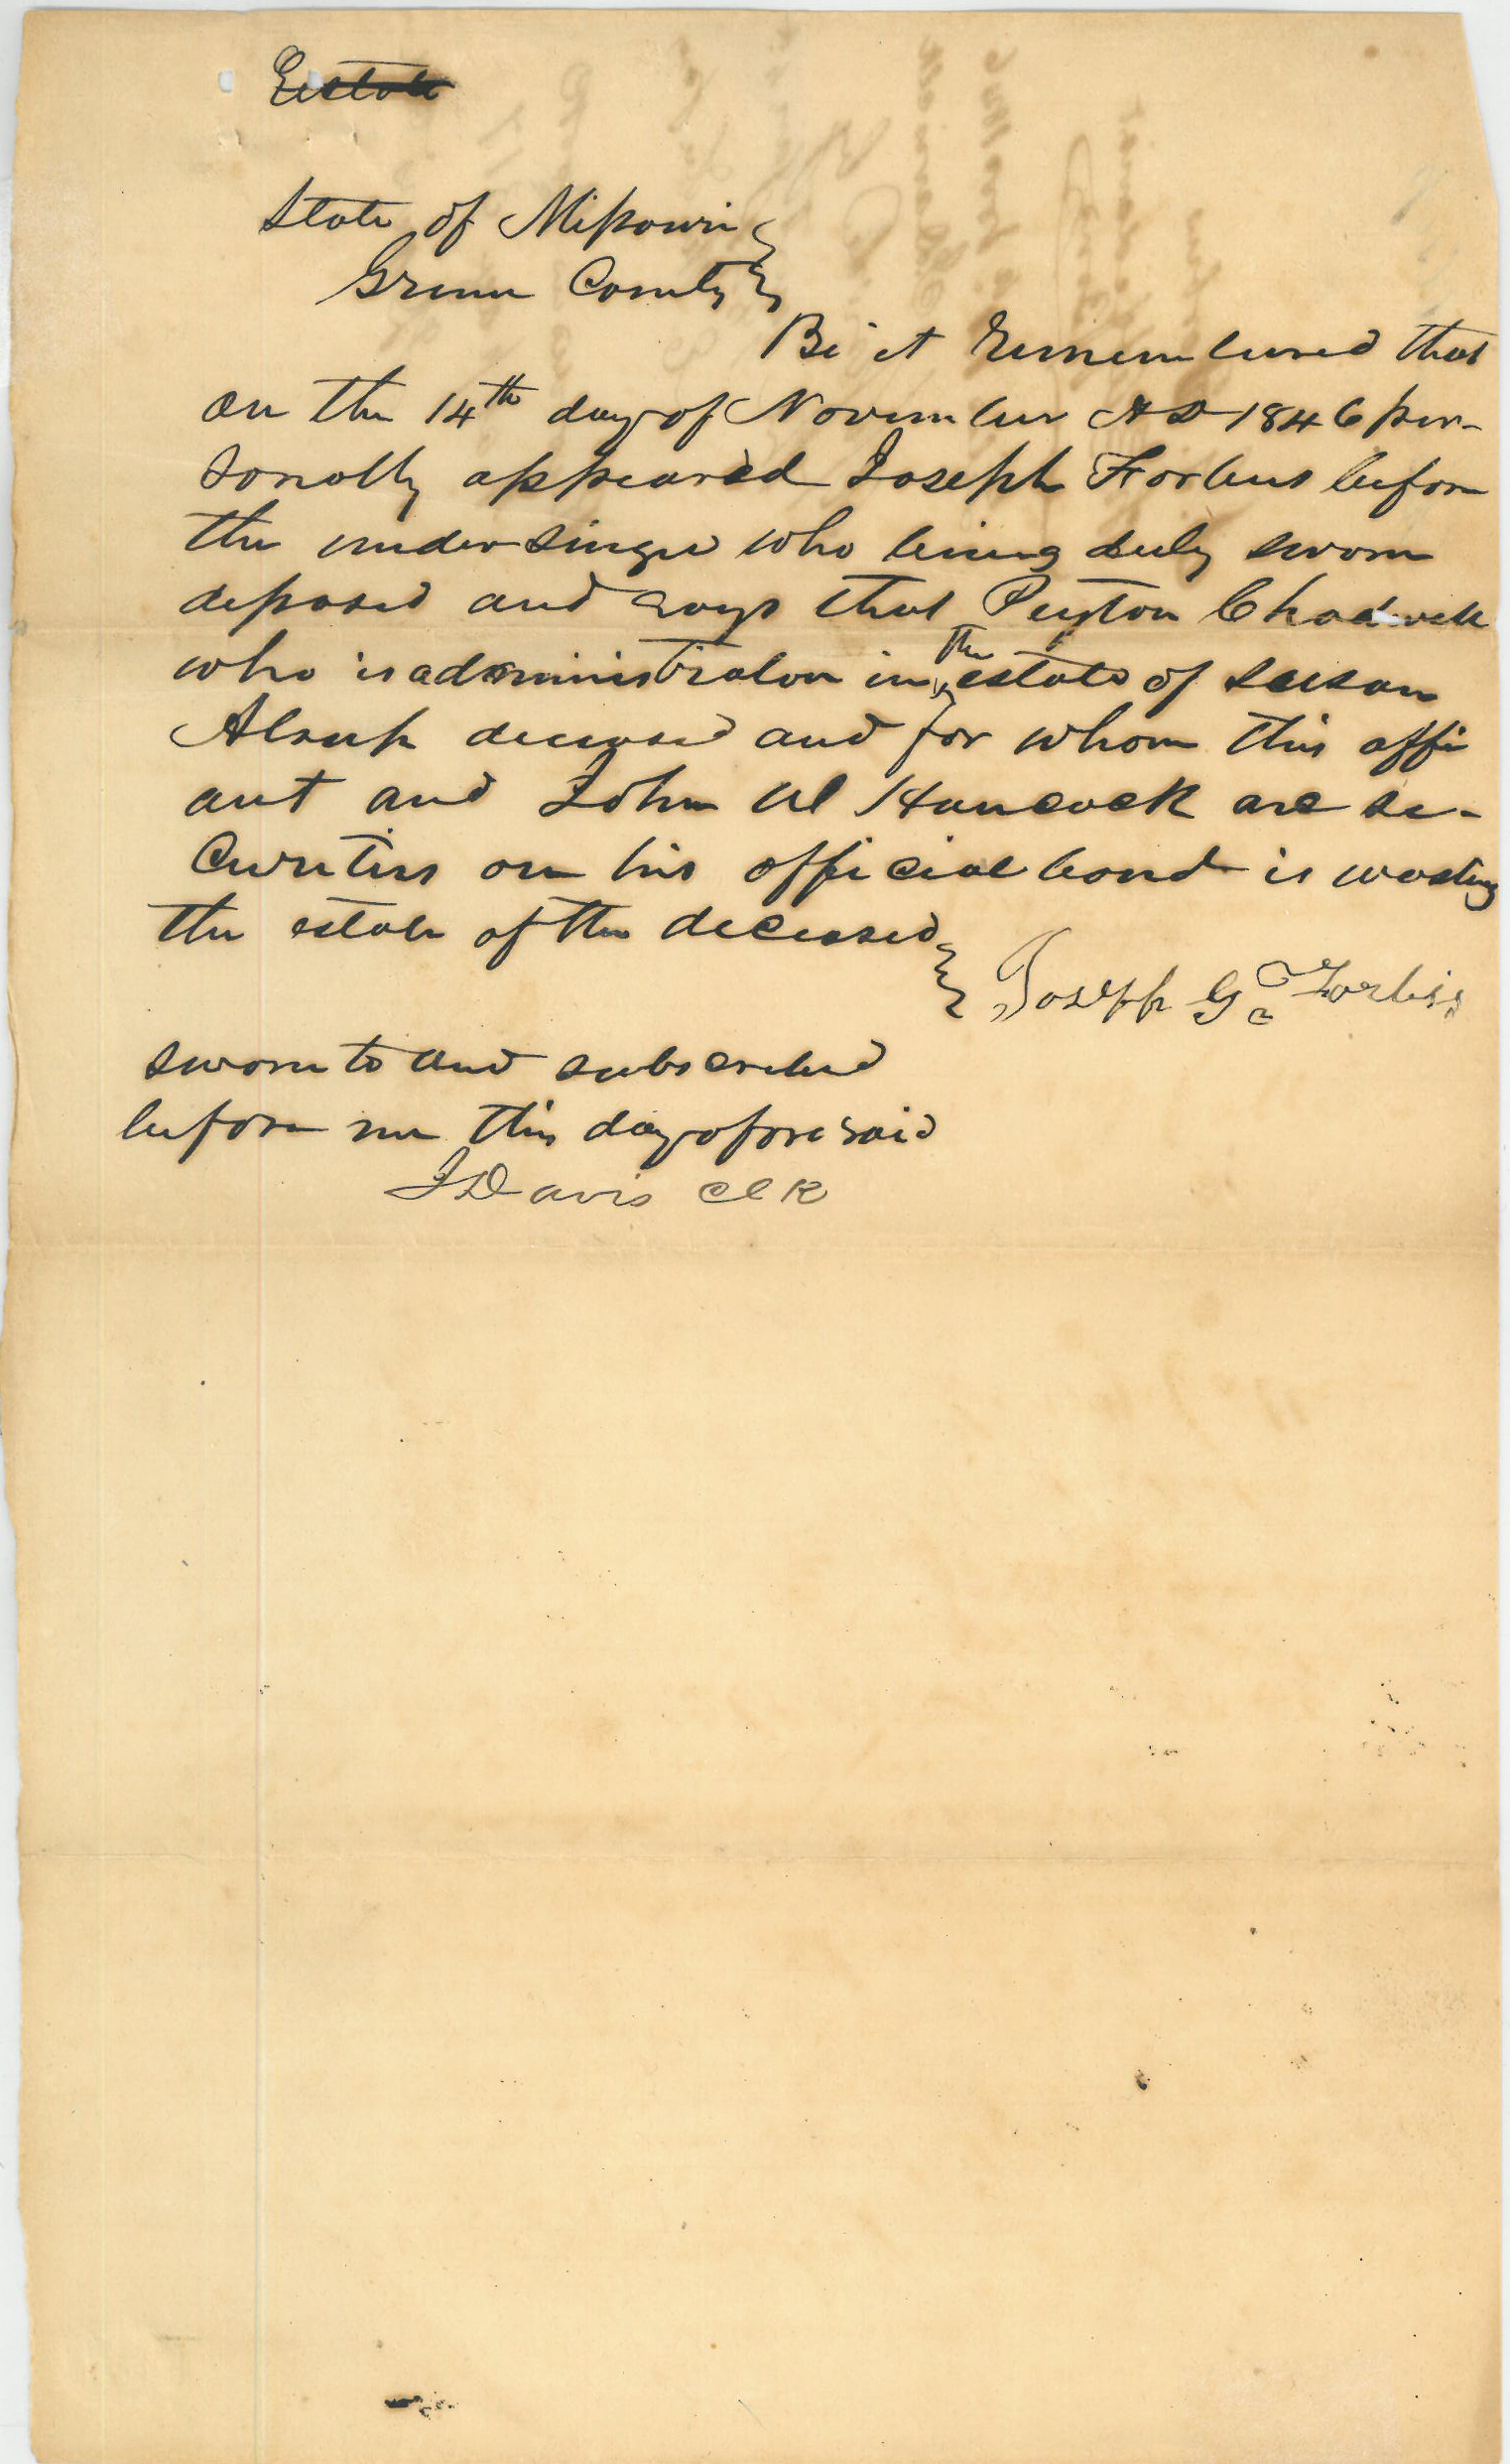 Estate
State of Missouri
Greene County
Be it remembered that
on the 14th day of November AD 1846 per-
sonally appeared Joseph Forbus before
the undersinge who being duly sworn
deposed and says that Peyton Chadwick
who is administrator in the estate of Susan
Alsup deceased and for whom this affi
ant and John W Hancock are se-
curities on his official bond is wasting
the estate of the deceased
Joseph G Forbiss
sworn to and subscribed
before me this day aforesaid
J Davis Clk